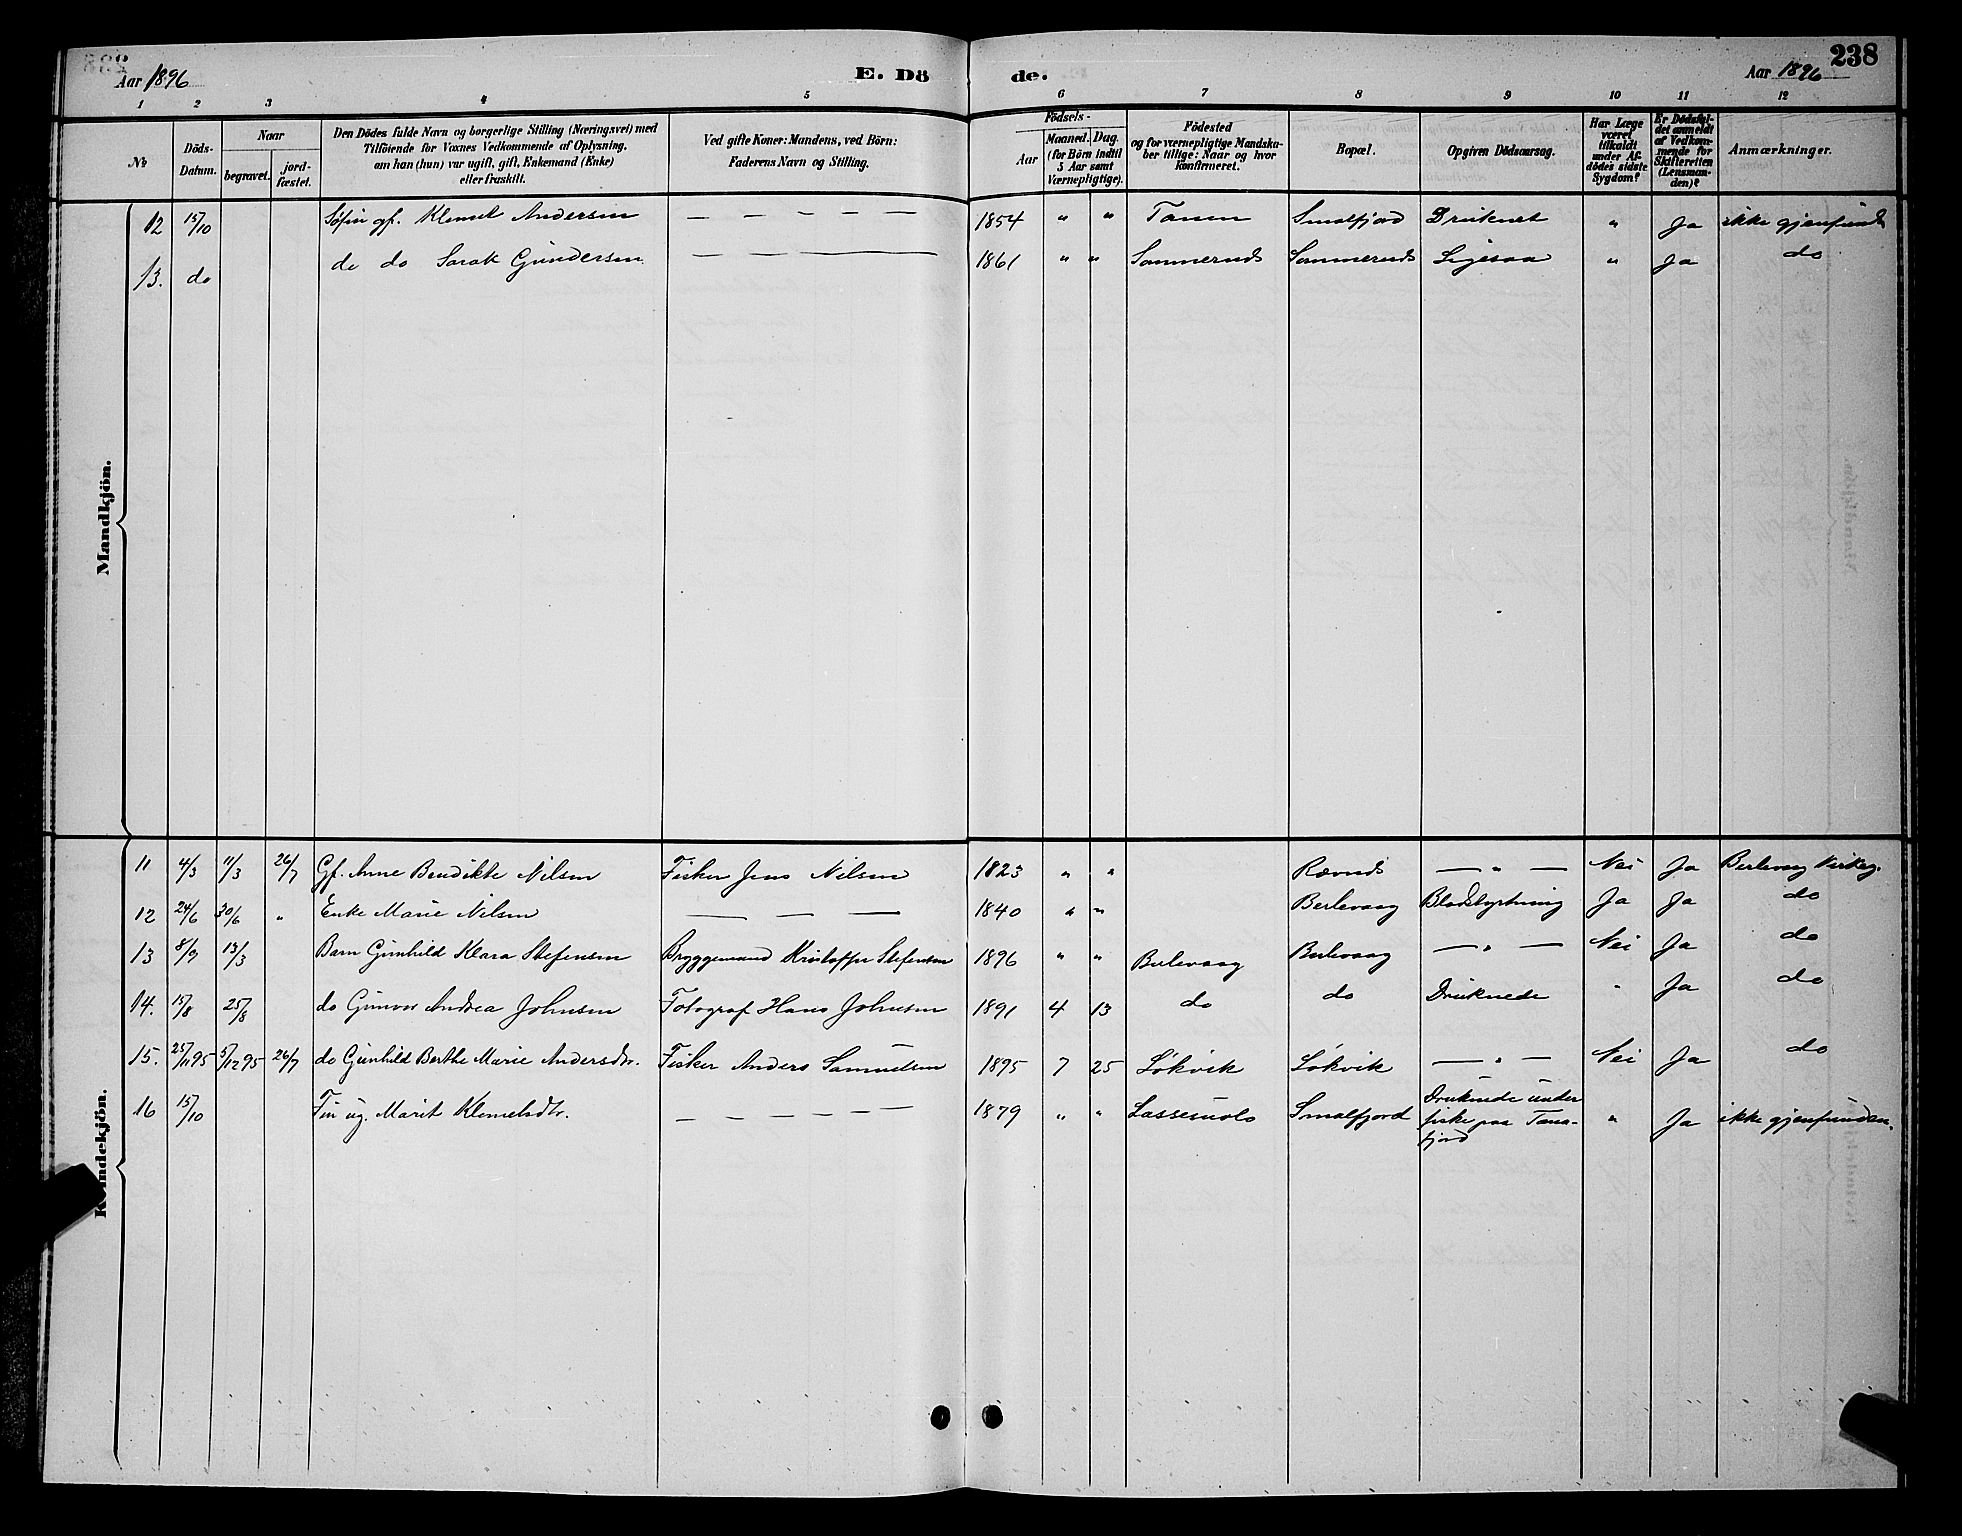 Aar 1896 E. Dö de. Aar 1896 238
1 2 3 4 5 6 7 8 9 10 11 12
№
Döds-
Datum.
Naar
begravet.
jord-
fæstet.
Den Dödes fulde Navn og borgerlige Stilling (Næringsvei) med
Tilföiende for Voxnes Vedkommende af Oplysning,
om han (hun) var ugift, gift, Enkemand (Enke)
eller fraskilt.
Ved gifte Koner: Mandens, ved Börn:
Faderens Navn og Stilling.
Födsels-
Aar
Maaned. Dag.
(for Börn indtil
5 Aar samt
Værnepligtige).
Födested
og for værnepligtige Mandska-
ber tillige: Naar og hvor
konfirmeret.
Bopæl.
Opgiven Dödsaarsag.
Har Læge
været
tilkaldt
under Af-
dödes sidste
Sygdom?
Er Dödsfal-
det anmeldt
af Vedkom-
mende for
Skifteretten
(Lensman-
den)?
Anmærkninger.
Mandkjön.
12 15/10 Söfin gf. Klemet Andersen — — — — — 1854 " " Tanen Smalfjord Druknet " Ja ikke gjenfunde
13. do do do Sarak Gundersen — — — 1861 " " Sommernes Sommernes Ligesaa " Ja do
Kvindekjön.
11 4/3 11/3 26/7 Gf. Anne Bendikte Nilsen Fisker Jens Nilsen 1823 " " Rævnes — " — Nei Ja Berlevag Kirkeg.
12 24/6 30/6 " Enke Marie Nilsen — — — 1840 " " Berlevaag Blodstyrtning Ja Ja do
13 8/9 13/3 Barn Gunhild Klara Stefensen Bryggemand Kristoffer Stefensen 1896 " " Berlevaag Berlevaag — " — Nei Ja do
14. 15/8 25/8 do Gunvor Andrea Johnsen Fotograf Hans Johnsen 1891 4 13 do do Druknede " Ja do
15. 25/11 95 5/12 95 26/7 do Gunhild Berthe Marie Andersdtr. Fisker Anders Samuelsen 1895 7 25 Løkvik Løkvik — " — Nei Ja do
16 15/10 Fin ug. Marit Klemetsdtr. — — — — — 1879 " " Lassesuolo Smalfjord Druknede under " Ja ikke gjenfunden.
fiske paa Tana-
fjord